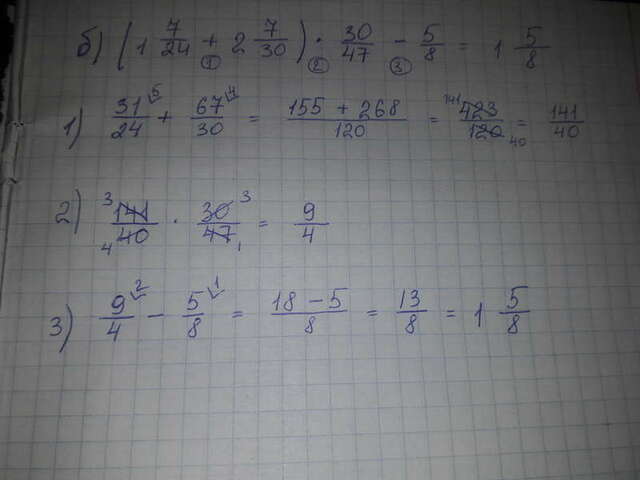 б) (1 7/24 + 2 7/30) · 30/47 − 5/8 = 1 5/8
① ② ③
1) 31/24 ⁵ + 67/30 ⁴ = (155 + 268)/120 = ¹⁴¹ 423/120 ₄₀ = 141/40
2) ³ 141/40 ₄ · 30/47 ³ ₁ = 9/4
3) 9/4 ² − 5/8 ¹ = (18 − 5)/8 = 13/8 = 1 5/8